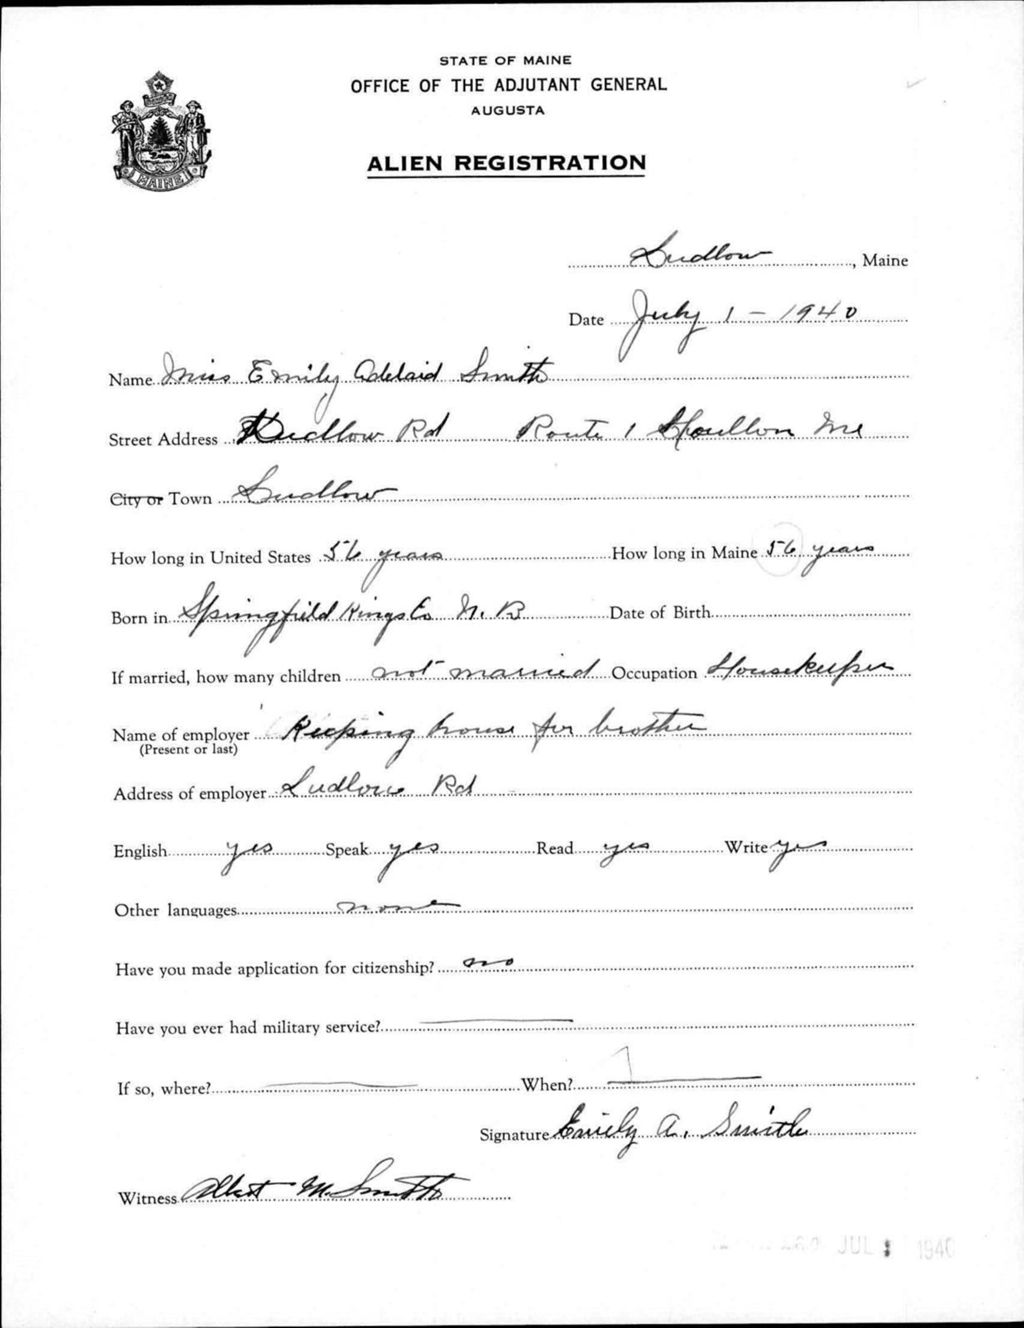 STATE OF MAINE
OFFICE OF THE ADJUTANT GENERAL
AUGUSTA
MAINE
ALIEN REGISTRATION
Ludlow, Maine
Date July 1 - 1940
Name Miss Emily Adelaid Smith
Street Address Ludlow Rd Route 1 Houlton Me
City or Town Ludlow
How long in United States 56 years How long in Maine 56 years
Born in Springfield Kings Co N. B Date of Birth
If married, how many children not married Occupation Housekeeper
Name of employer Keeping house for brother
(Present or last)
Address of employer Ludlow Rd
English yes Speak yes Read yes Write yes
Other languages none
Have you made application for citizenship? no
Have you ever had military service?
If so, where? When?
Signature Emily A. Smith
Witness Albert M. Smith
JUL 1940